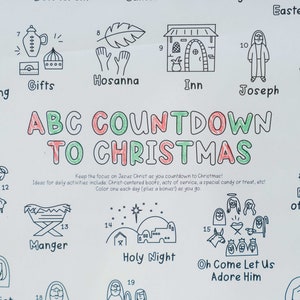 Easte
7
8
9
10
ng
Gifts
Hosanna
Inn
Joseph
ABC COUNTDOWN
TO CHRISTMAS
Keep the focus on Jesus Christ as you countdown to Christmas!
Ideas for daily activities include: Christ-centered books, acts of service, a special candy or treat, etc!
Color one each day (plus a bonus!) as you go.
13
14
15
Manger
Holy Night
Oh Come Let Us
Adore Him
18
19
20
21